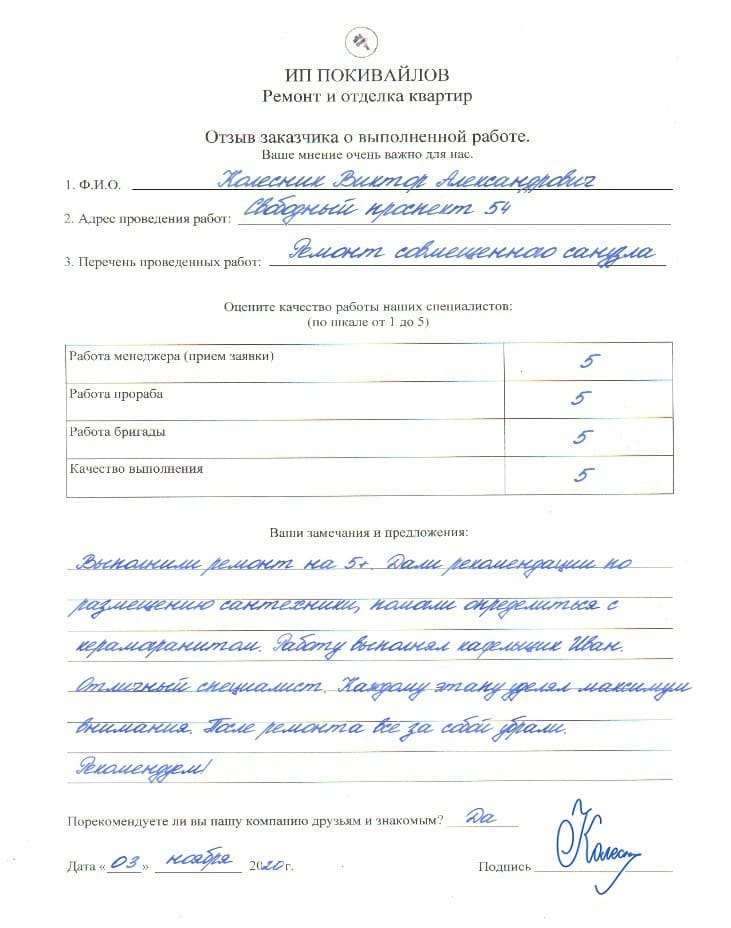 ИП ПОКИВАЙЛОВ
Ремонт и отделка квартир
Отзыв заказчика о выполненной работе.
Ваше мнение очень важно для нас.
1. Ф.И.О. Колесник Виктор Александрович
2. Адрес проведения работ: Свободный проспект 54
3. Перечень проведенных работ: Ремонт совмещенного санузла
Оцените качество работы наших специалистов:
(по шкале от 1 до 5)
Работа менеджера (прием заявки) 5
Работа прораба 5
Работа бригады 5
Качество выполнения 5
Ваши замечания и предложения:
Выполнили ремонт на 5+. Дали рекомендации по
размещению сантехники, помогли определиться с
керамогранитом. Работу выполнял кафельщик Иван.
Отличный специалист. Каждому этапу уделял максимум
внимания. После ремонта все за собой убрали.
Рекомендуем!
Порекомендуете ли вы нашу компанию друзьям и знакомым? Да
Дата «03» ноября 2020 г. Подпись Колесн